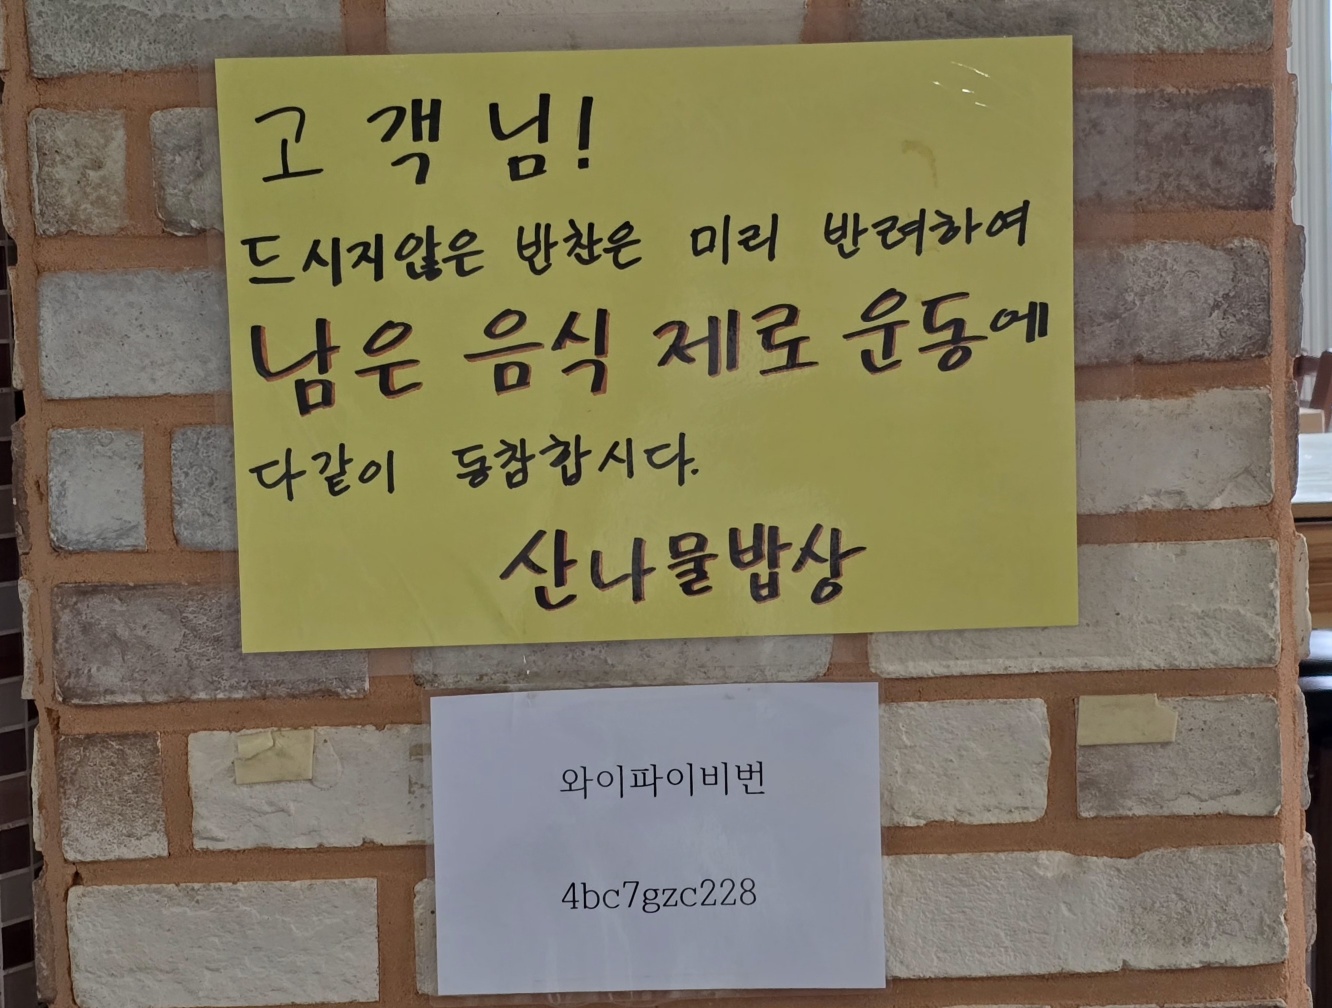 고객님!
드시지않은 반찬은 미리 반려하여
남은 음식 제로 운동에
다같이 동참합시다.
산나물밥상
와이파이비번
4bc7gzc228